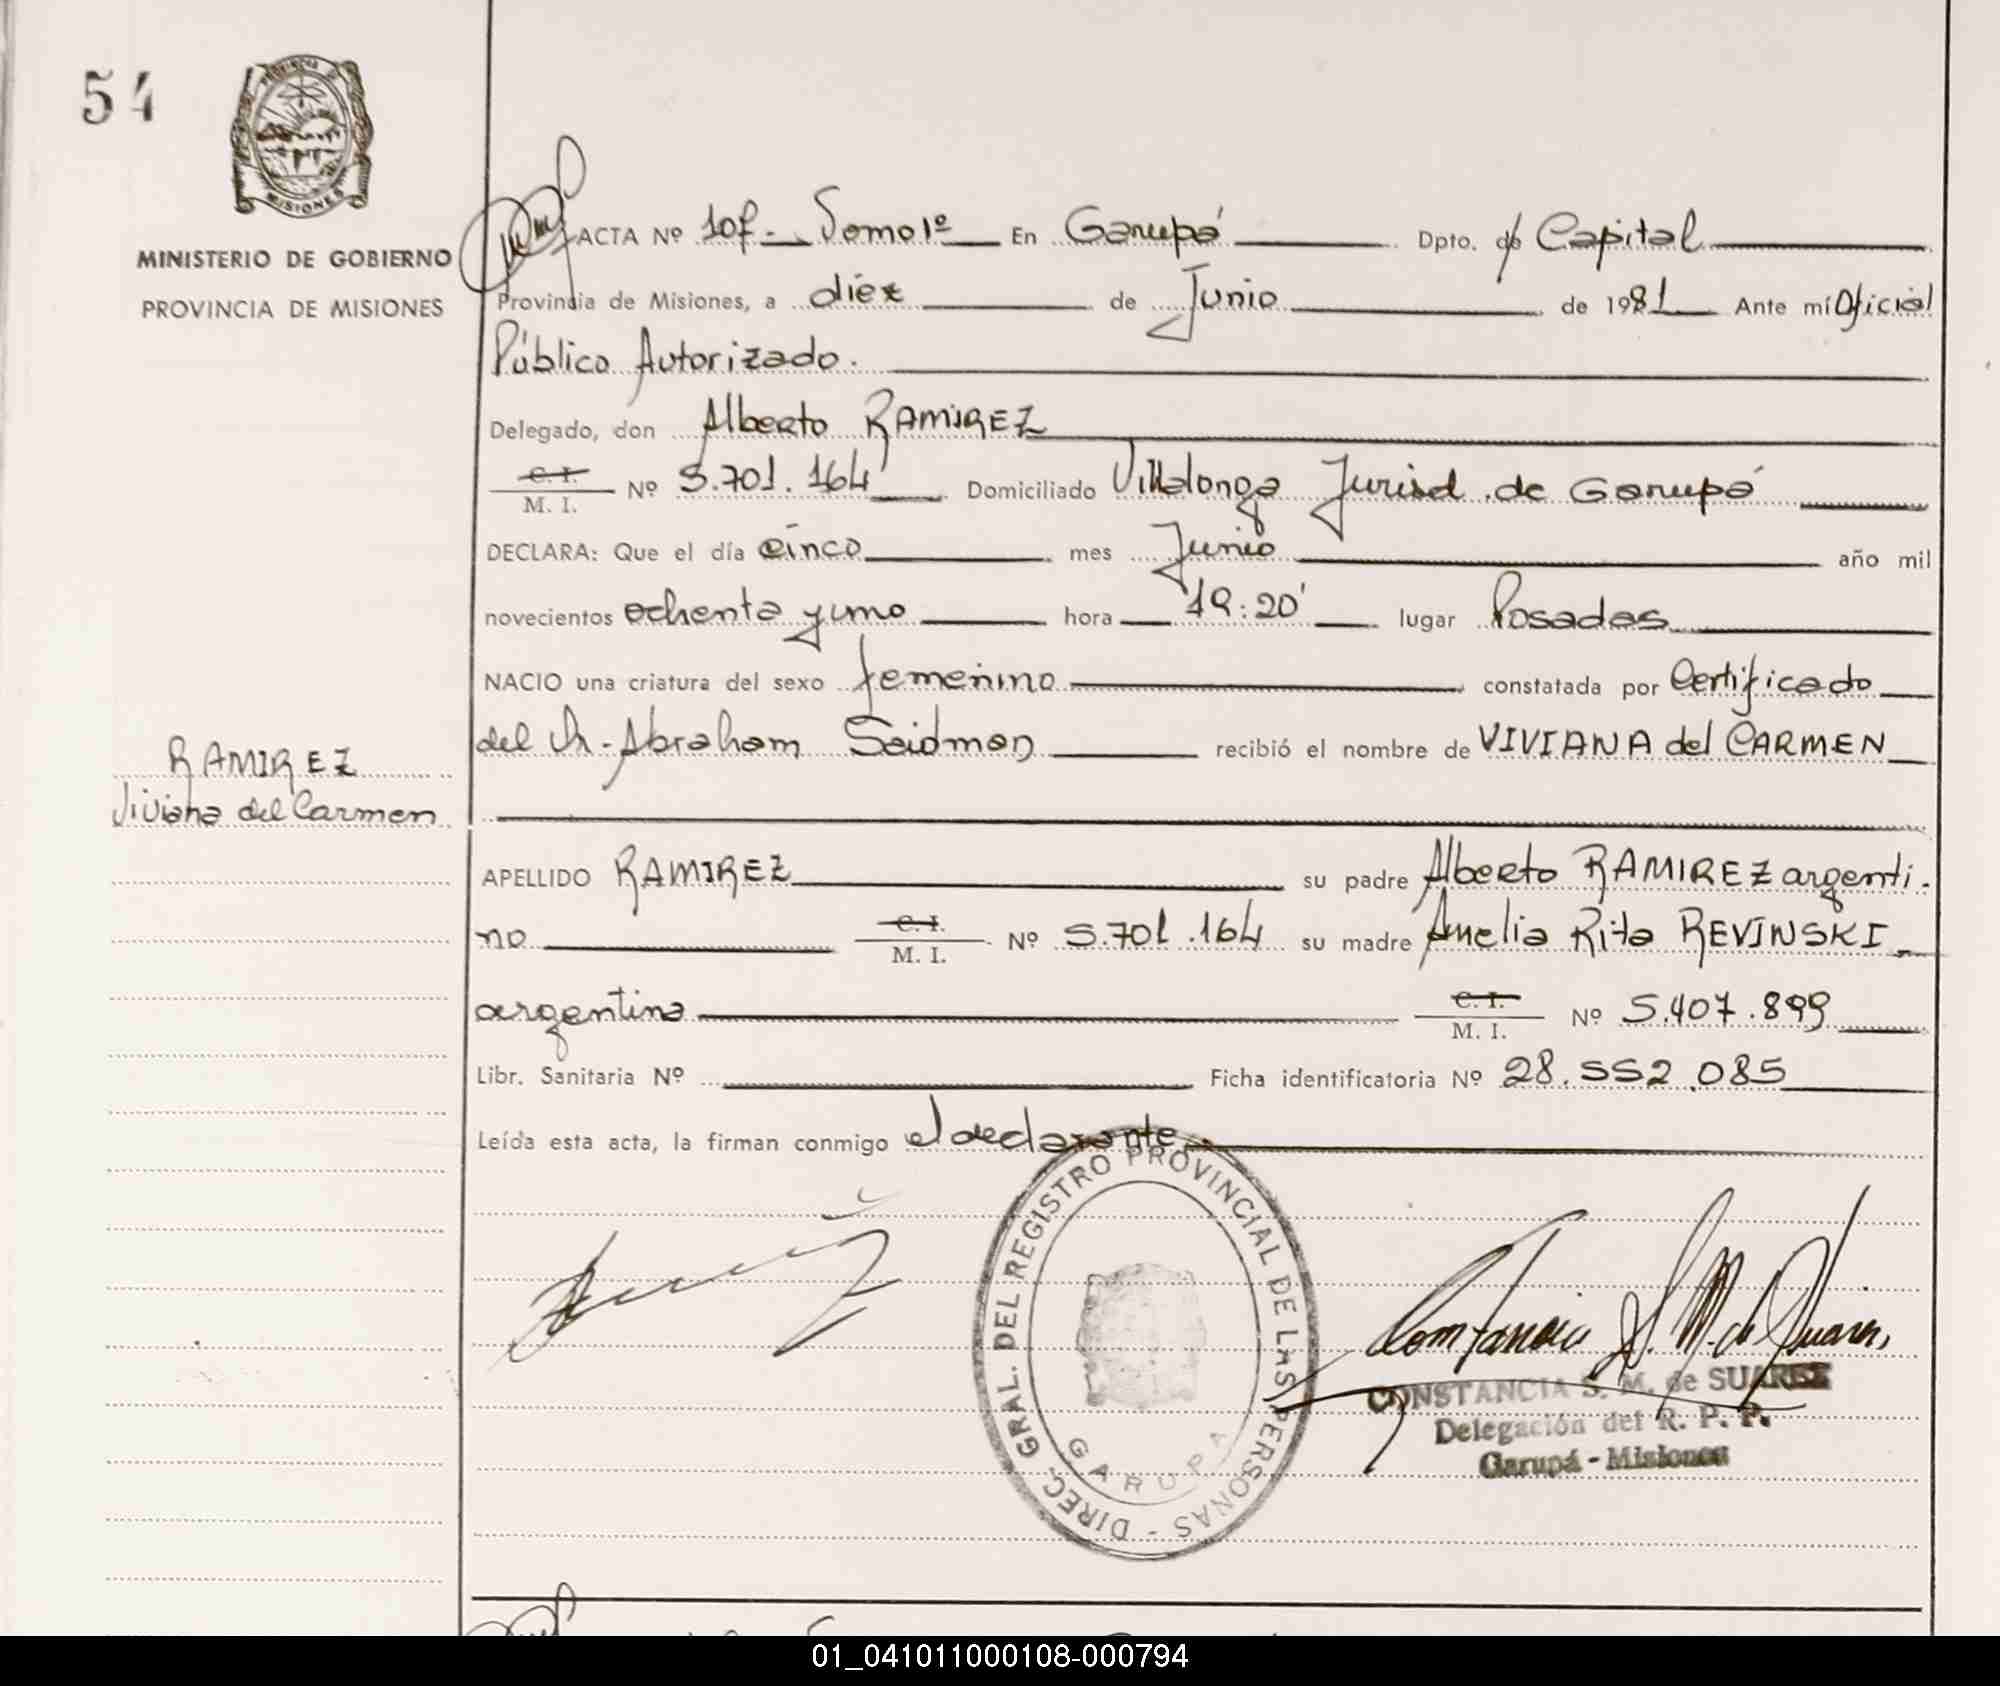 54
PROVINCIA DE
MISIONES
MINISTERIO DE GOBIERNO
PROVINCIA DE MISIONES
ACTA Nº 107.- Tomo 1º En Garupá Dpto. de Capital
Provincia de Misiones, a diez de Junio de 1981 Ante mí Oficial
Público Autorizado.
Delegado, don Alberto RAMIREZ
C. I.
M. I. Nº 5.701.164 Domiciliado Villalonga Jurisd. de Garupá
DECLARA: Que el día cinco mes Junio año mil
novecientos ochenta y uno hora 19:20' lugar Posadas
NACIO una criatura del sexo femenino constatada por Certificado
del Dr. Abraham Seidman recibió el nombre de VIVIANA del CARMEN
RAMIREZ
Viviana del Carmen
APELLIDO RAMIREZ su padre Alberto RAMIREZ argenti-
no C. I. M. I. Nº 5.701.164 su madre Amelia Rita REVINSKI
argentina C. I. M. I. Nº 5.407.899
Libr. Sanitaria Nº Ficha identificatoria Nº 28.552.085
Leída esta acta, la firman conmigo el declarante
DIREC. GRAL. DEL REGISTRO PROVINCIAL DE LAS PERSONAS -
GARUPA
Constancia S. M. de Suarez
CONSTANCIA S. M. de SUAREZ
Delegación del R. P. P.
Garupá - Misiones
01_041011000108-000794